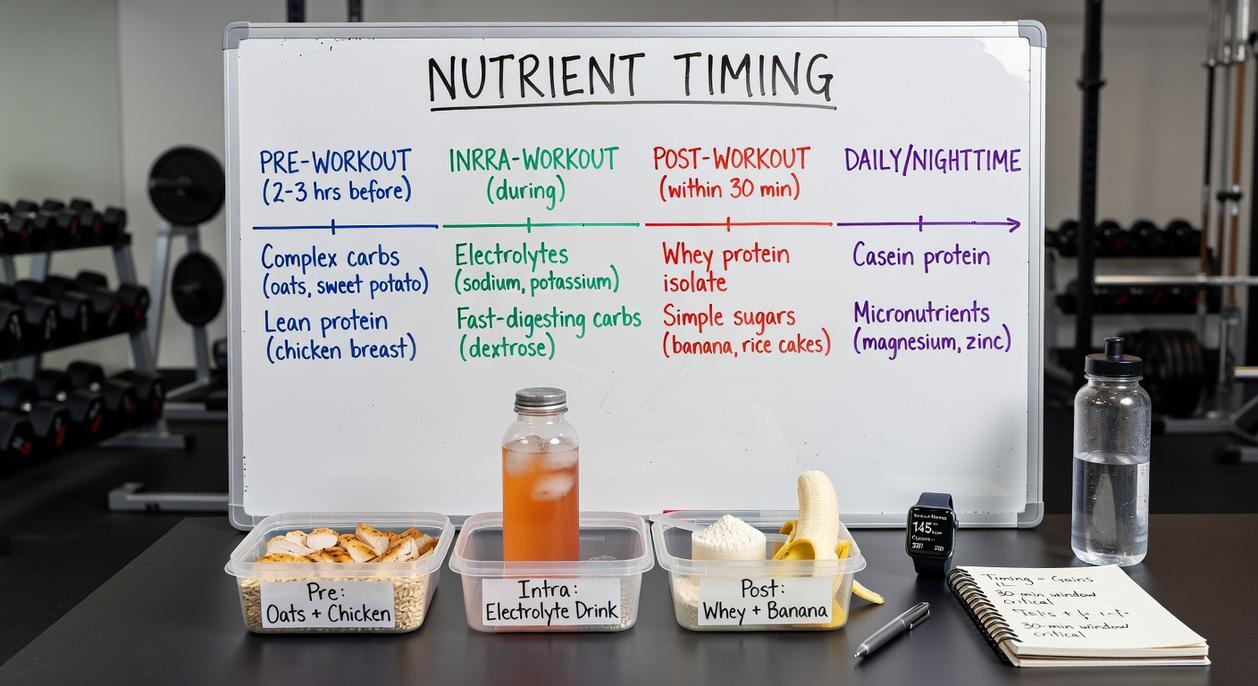 NUTRIENT TIMING
PRE-WORKOUT
(2-3 hrs before)
Complex carbs
(oats, sweet potato)
Lean protein
(chicken breast)
INRRA-WORKOUT
(during)
Electrolytes
(sodium, potassium)
Fast-digesting carbs
(dextrose)
POST-WORKOUT
(within 30 min)
Whey protein
isolate
Simple sugars
(banana, rice cakes)
DAILY/NIGHTTIME
Casein protein
Micronutrients
(magnesium, zinc)
Pre:
Oats + Chicken
Intra:
Electrolyte Drink
Post:
Whey + Banana
145
Timing = Gains
30 min window
critical
30-min window
critical